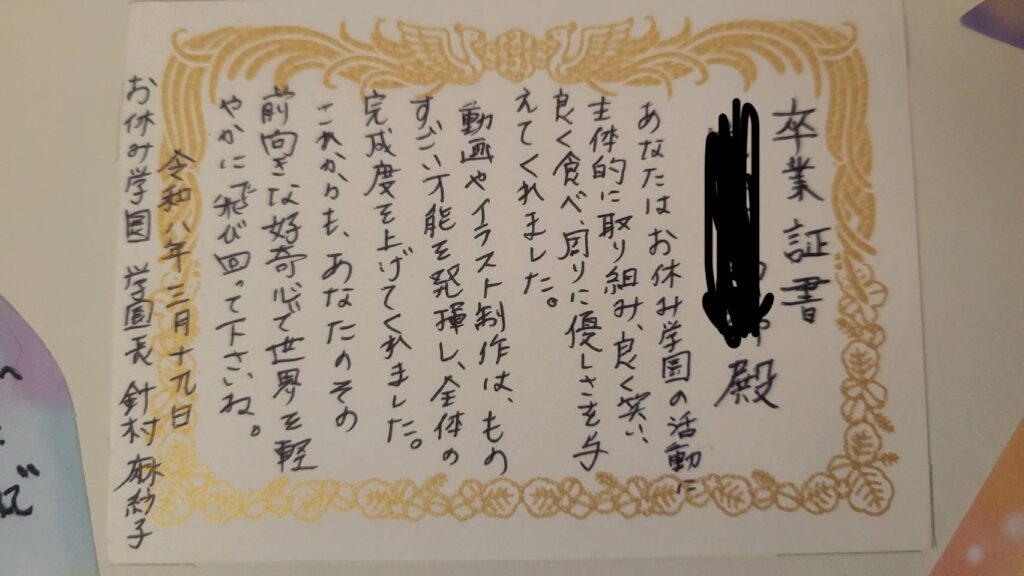 卒業証書
殿
あなたはお休み学園の活動に
主体的に取り組み、良く笑い、
良く食べ、周りに優しさを与
えてくれました。
動画やイラスト制作は、もの
すごい才能を発揮し、全体の
完成度を上げてくれました。
これからも、あなたのその
前向きな好奇心で世界を軽
やかに飛び回って下さいね。
令和八年三月十九日
お休み学園 学園長 針村 麻紗子